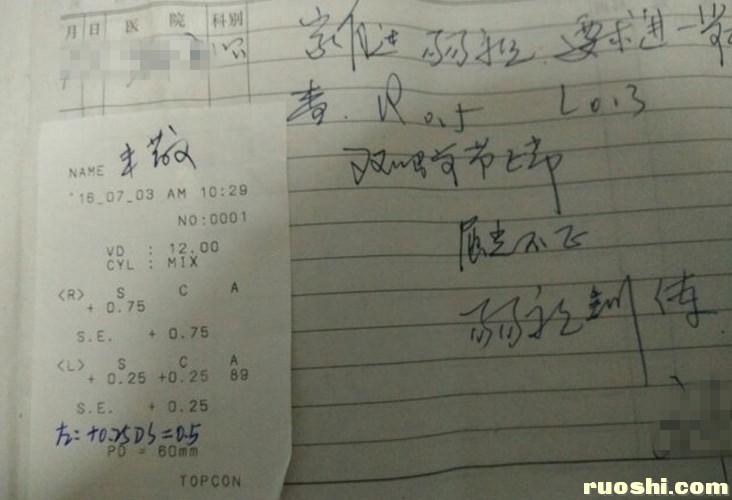 月 日 医 院 科别
弱视 要求进一步
查. R 0.5 L 0.3
双眼前节正常
屈光不正
弱视训练
NAME
'16_07_03 AM 10:29
NO:0001
VD : 12.00
CYL : MIX
<R> S C A
+ 0.75
S.E. + 0.75
<L> S C A
+ 0.25 +0.25 89
S.E. + 0.25
+0.25DS=0.5
PD = 60mm
TOPCON
ruoshi.com